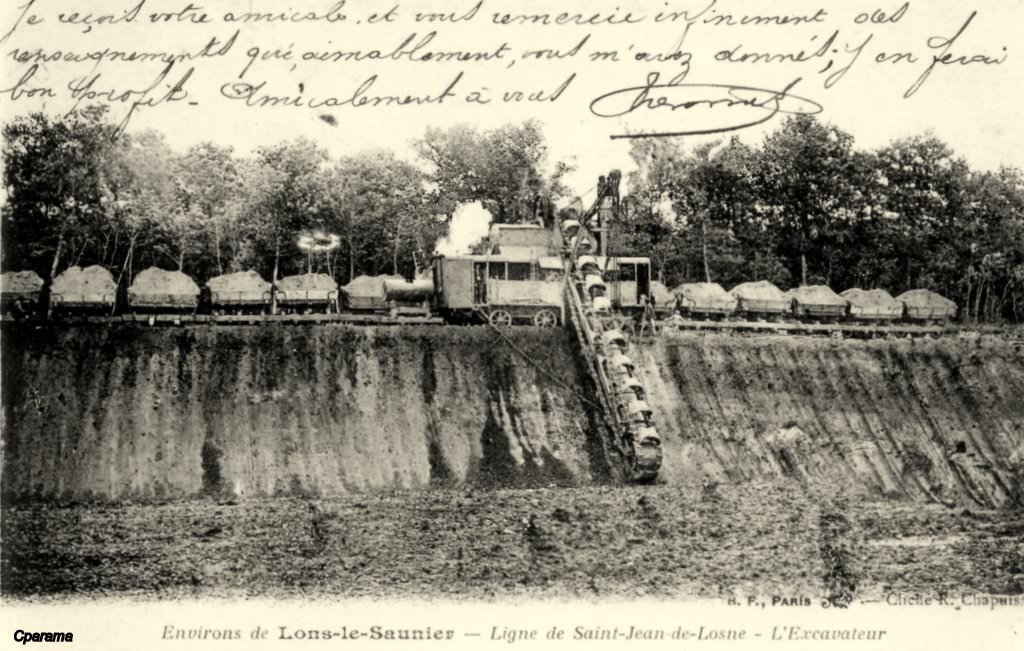 Je reçois votre amicale, et vous remercie infiniment des
renseignements que, aimablement, vous m'avez donnés; J'en ferai
bon profit - Amicalement à vous
B. F., PARIS — Cliché R. Chapuis
Cparama
Environs de Lons-le-Saunier — Ligne de Saint-Jean-de-Losne - L'Excavateur